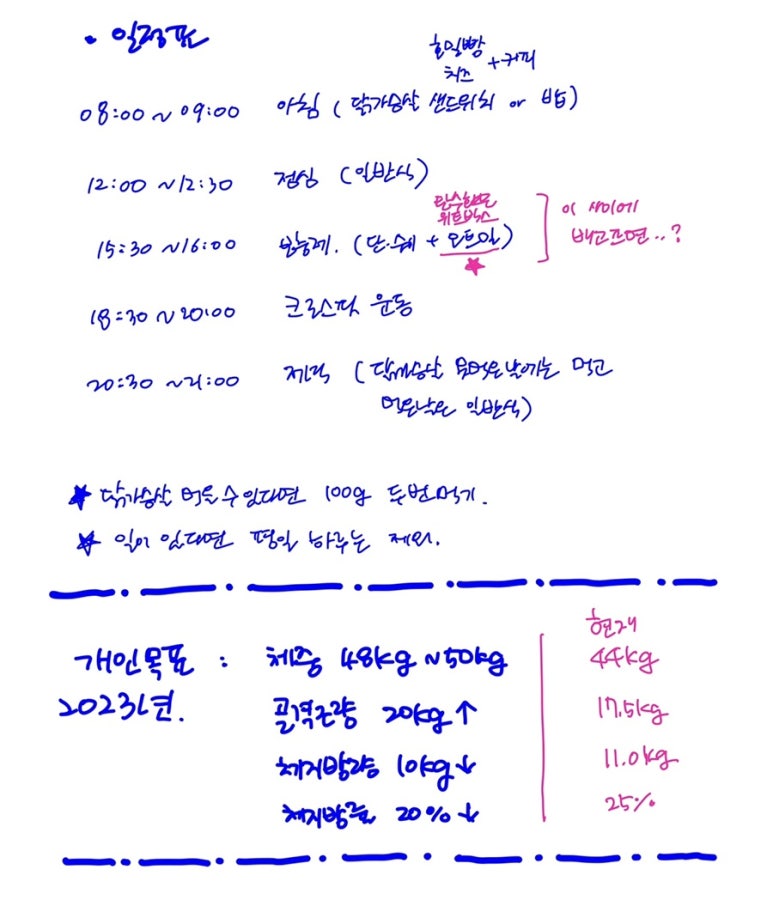 • 일정표
호밀빵
치즈 +커피
08:00 ~ 09:00 아침 ( 닭가슴살 샌드위치 or 밥)
12:00 ~12:30 점심 (일반식)
탄수화물
위트빅스
15:30 ~16:00 (단.쉐 + 오트밀) 이 사이에
★ 배고프면..?
18:30 ~ 20:00 크로스핏 운동
20:30 ~21:00 저녁 (닭가슴살 못먹은날에는 먹고
먹은날은 일반식)
★ 닭가슴살 먹을 수 있다면 100g 두번먹기.
★ 일이 있다면 평일 하루는 제외.
현재
개인목표 : 체중 48kg ~50kg 44kg
2023년. 골격근량 20kg ↑ 17.5kg
체지방량 10kg ↓ 11.0kg
체지방률 20% ↓ 25%